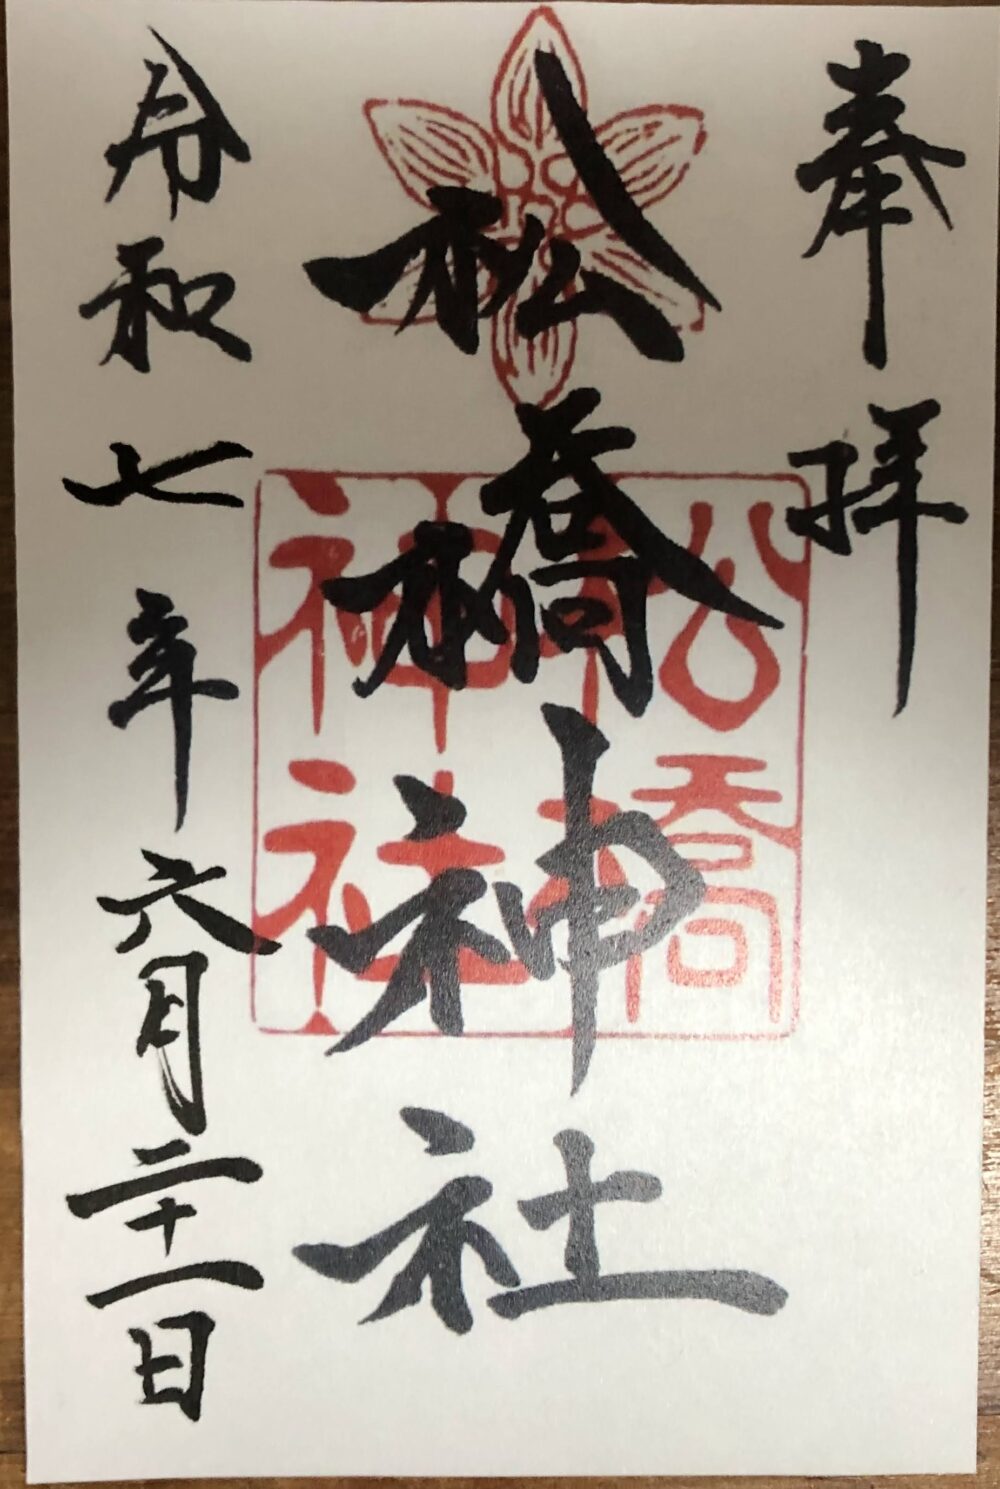 奉拝
松橋神社
松橋
神社
令和七年六月二十一日